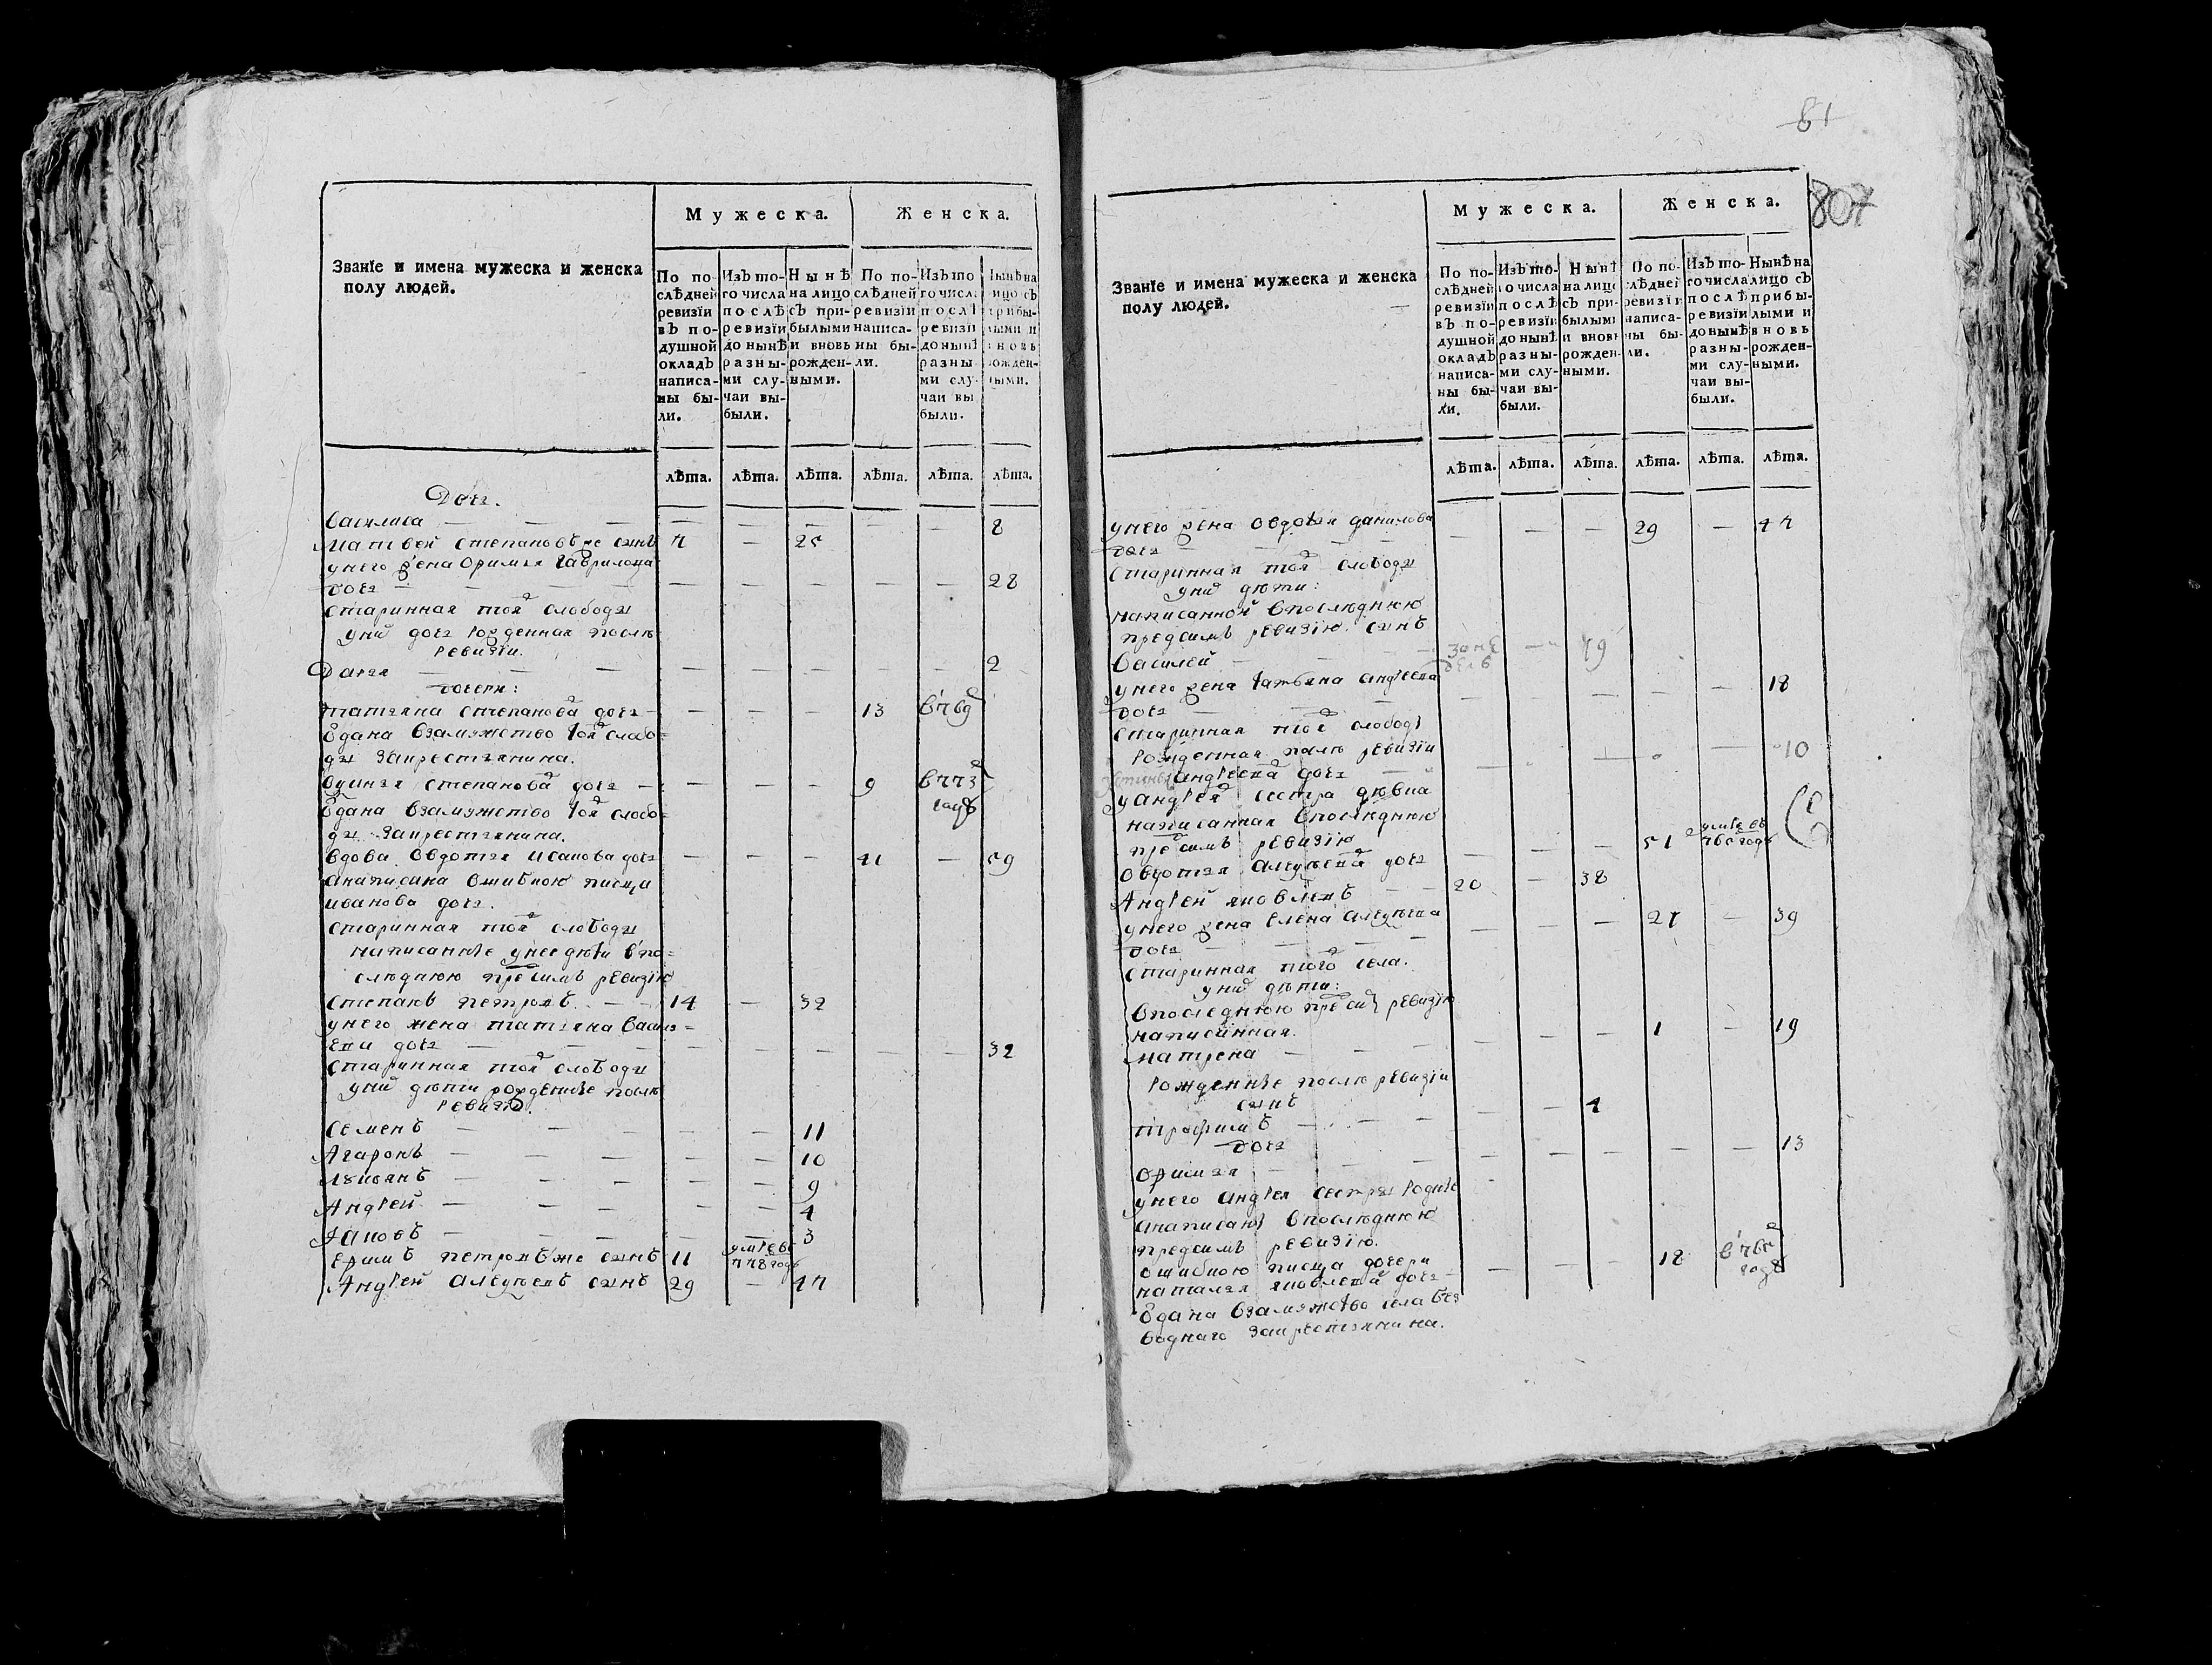 61
807
Званїе и имена мужеска и женска
полу людей.
Мужеска.
Женска.
По по-
слѣдней
ревизїи
въ по-
душной
окладъ
написа-
ны бы-
ли.
Изъ то-
го числа
послѣ
ревизїи
до нынѣ
разны-
ми слу-
чаи вы-
были.
Нынѣ
на лицо
съ при-
былыми
и вновь
рожден-
ными.
По по-
слѣдней
ревизїи
написа-
ны бы-
ли.
Изъ то
го числа
послѣ
ревизїи
до нынѣ
разны
ми слу
чаи вы
были.
Нынѣ на
лицо съ
прибы-
лыми и
вновь
рожден-
ными.
лѣта. лѣта. лѣта. лѣта. лѣта. лѣта.
Дочь.
василиса — — — — — — — — 8
Матвей степановъ же сынъ 7 — 25
у него жена Офимья гаврилова
дочь — — — — — — — 28
старинная той слободы
у них дочь рожденная после
ревизїи.
Дарья — — — — — — — 2
дочери:
татьяна степанова дочь — — — 13
вдана взамужство той слобо=
ды за крестьянина.
степанова дочь — — — 9
году
вдана взамужство той слобо=
ды за крестьянина.
вдова Овдотья Исакова дочь — — — 41 — 59
а написана ошибкою писца
иванова дочь.
старинная той слободы
написанные у нее дети в по=
следнюю пред сим ревизїю
степанъ петровъ — — 14 — 32
у него жена татьяна василь=
ева дочь — — — — — — — 32
старинная той слободы
у них дети рожденные после
ревизїи.
семенъ — — — — — 11
Агафонъ — — — — — 10
Лукьянъ — — — — — 9
Андрей — — — — — 4
Яковъ — — — — — 3
Ефимъ петровъ же сынъ 11 умре въ
778 годъ
Андрей Алексеевъ сынъ 29 — 47
Званїе и имена мужеска и женска
полу людей.
Мужеска.
Женска.
По по-
слѣдней
ревизїи
въ по-
душной
окладъ
написа-
ны бы-
ли.
Изъ то-
го числа
послѣ
ревизїи
до нынѣ
разны-
ми слу-
чаи вы-
были.
Нынѣ
на лицо
съ при-
былыми
и вновь
рожден-
ными.
По по-
слѣдней
ревизїи
написа-
ны бы-
ли.
Изъ то-
го числа
послѣ
ревизїи
до нынѣ
разны-
ми слу-
чаи вы-
были.
Нынѣ на
лицо съ
прибы-
лыми и
вновь
рожден-
ными.
лѣта. лѣта. лѣта. лѣта. лѣта. лѣта.
у него жена Овдотья данилова
дочь — — — 29 — 47
старинная той слободы
у них дети:
написанной в последнюю
пред симъ ревизїю сынъ
василей — — 19
у него жена татьяна андреева
дочь — — — — — 18
старинная той слободы
рожденная после ревизїи
андреева дочь — — — — — 10
у андрея сестра девка
написанная в последнюю
пред симъ ревизїю
Овдотья Алексеева дочь — — — 51 умре въ
годъ
Андрей яковлевъ — — 20 — 38
у него жена Елена Алексеева
дочь — — — — 21 — 39
старинная того села.
у них дети:
в последнюю пред сим ревизїю
написанная.
матрена — — — — — — 1 — 19
рожденные после ревизїи
сынъ
трофимъ — — — — — 4
дочь
Офимья — — — — — — — 13
у него андрея сестра родная
а написаны в последнюю
пред симъ ревизїю.
ошибкою писца дочери
наталья яковлева дочь — — — 18
году
вдана взамужство села без
воднаго за крестьянина.